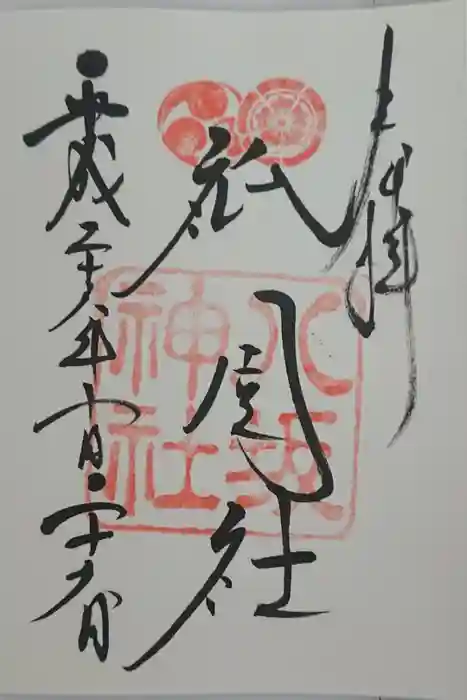 奉拝
祇園社
八坂
神社
平成二十年十月二十六日